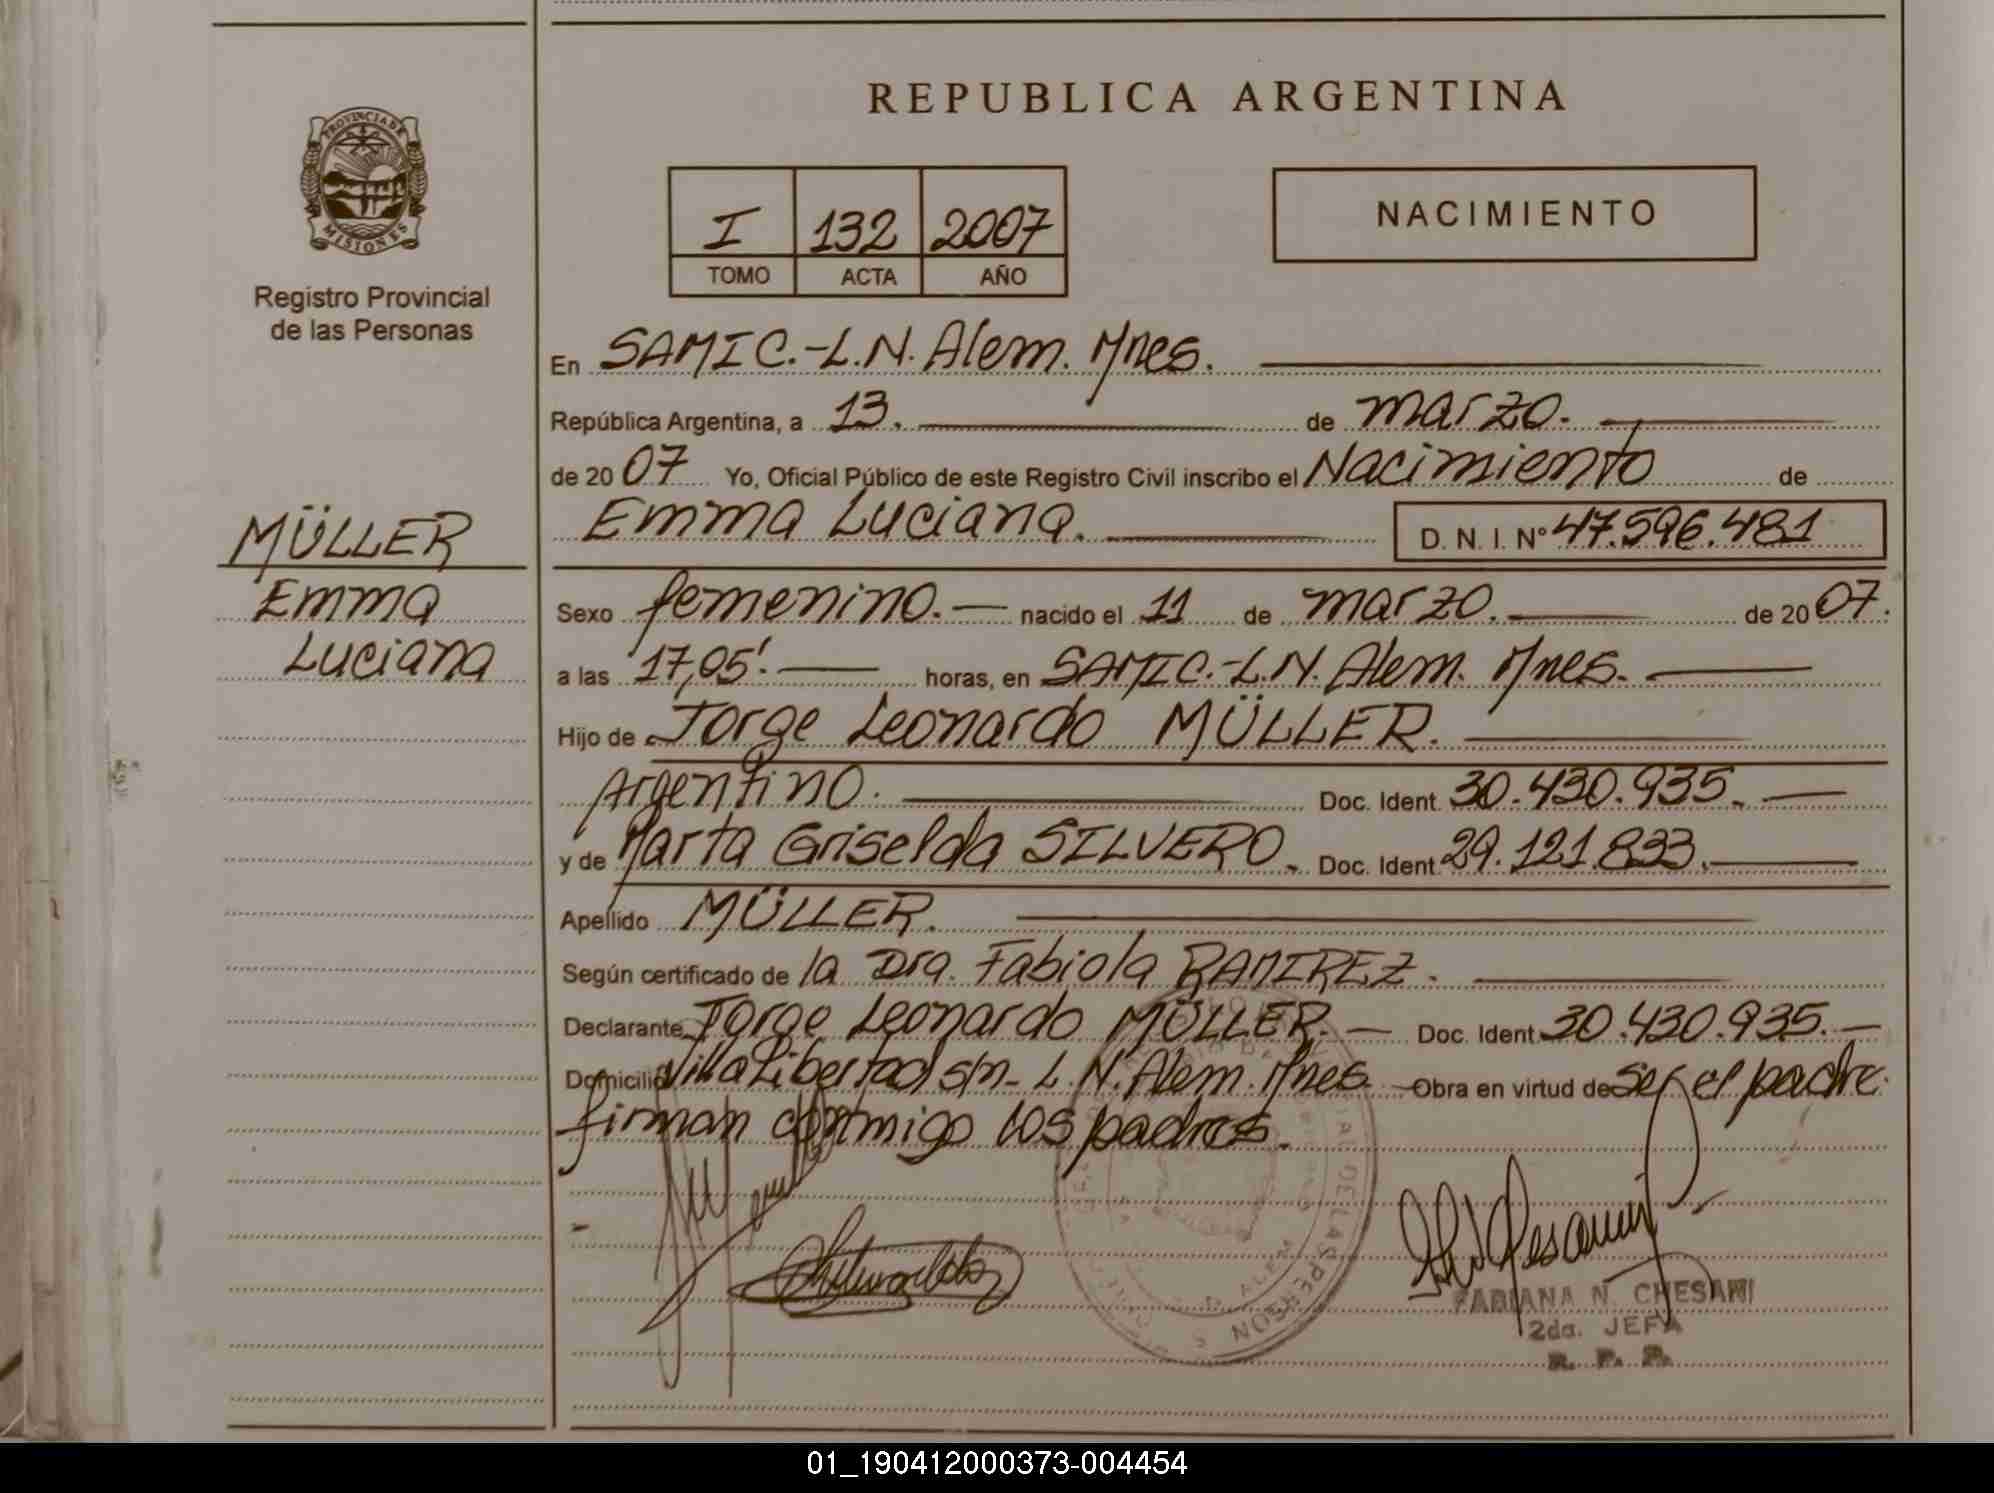 REPUBLICA ARGENTINA
PROVINCIA DE
MISIONES
Registro Provincial
de las Personas
I 132 2007
TOMO ACTA AÑO
NACIMIENTO
En SAMIC.-L.N. Alem. Mnes.
República Argentina, a 13. de marzo.
de 20 07 Yo, Oficial Público de este Registro Civil inscribo el Nacimiento de
Emma Luciana. D. N. I. Nº 47.596.481
MÜLLER
Emma
Luciana
Sexo femenino. nacido el 11 de marzo. de 20 07.
a las 17,05'. horas, en SAMIC.-L.N. Alem. Mnes.
Hijo de Jorge Leonardo MÜLLER.
Argentino. Doc. Ident. 30.430.935.
y de Marta Griselda SILVERO. Doc. Ident. 29.121.833.
Apellido MÜLLER.
Según certificado de la Dra. Fabiola RAMIREZ.
Declarante Jorge Leonardo MÜLLER. Doc. Ident. 30.430.935.
Domicilio Villa Libertad s/n- L.N. Alem. Mnes. Obra en virtud de ser el padre.
firman conmigo los padres.
FABIANA N. CHESANI
2da. JEFA
R. P. P.
01_190412000373-004454